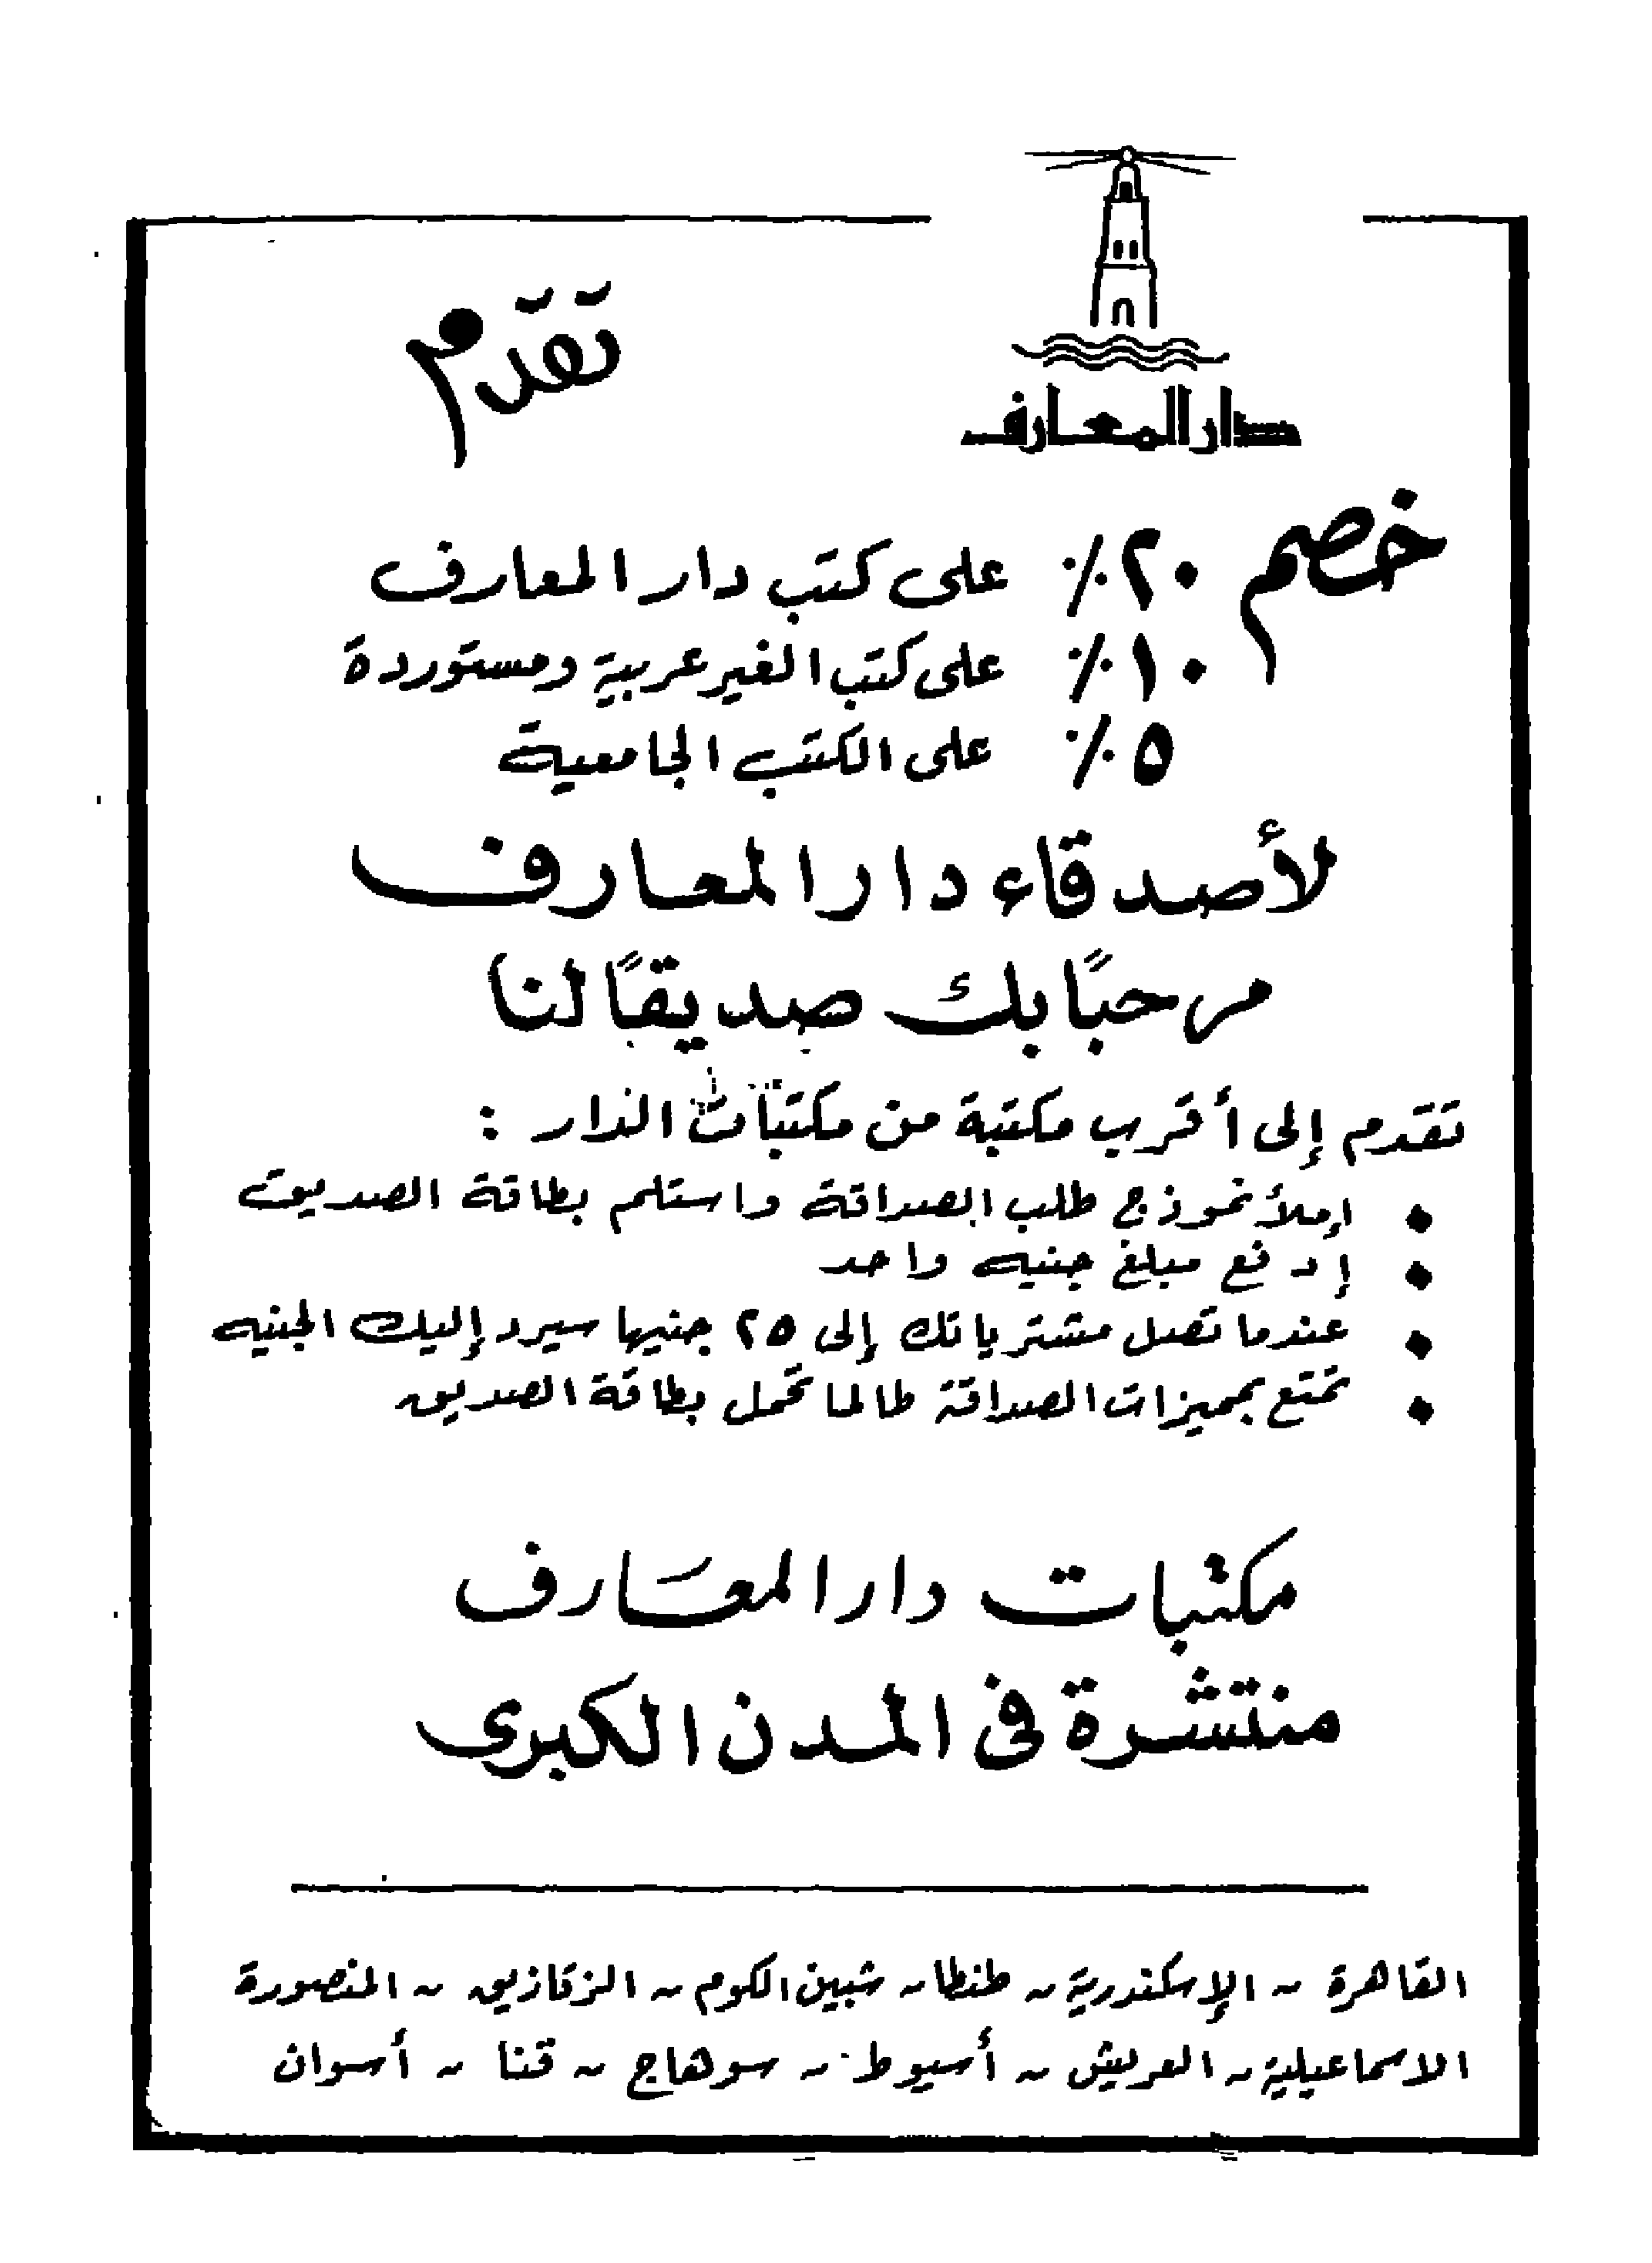 دار المعارف
تقدّم
خصم ٢٠٪ على كتب دار المعارف
١٠٪ على كتب الغير عربية ومستوردة
٥٪ على الكتب الجامعية
لأصدقاء دار المعارف
مرحبًا بك صديقًا لنا
تقدم إلى أقرب مكتبة من مكتبات الدار :
إملأ نموذج طلب الصداقة واستلم بطاقة الصديق
إدفع مبلغ جنيه واحد
عندما تصل مشترياتك إلى ٢٥ جنيها سيرد إليك الجنيه
تمتع بمميزات الصداقة طالما تحمل بطاقة الصديق
مكتبات دار المعارف
منتشرة فى المدن الكبرى
القاهرة ~ الإسكندرية ~ طنطا ~ شبين الكوم ~ الزقازيق ~ المنصورة
الاسماعيلية ~ العريش ~ أسيوط ~ سوهاج ~ قنا ~ أسوان